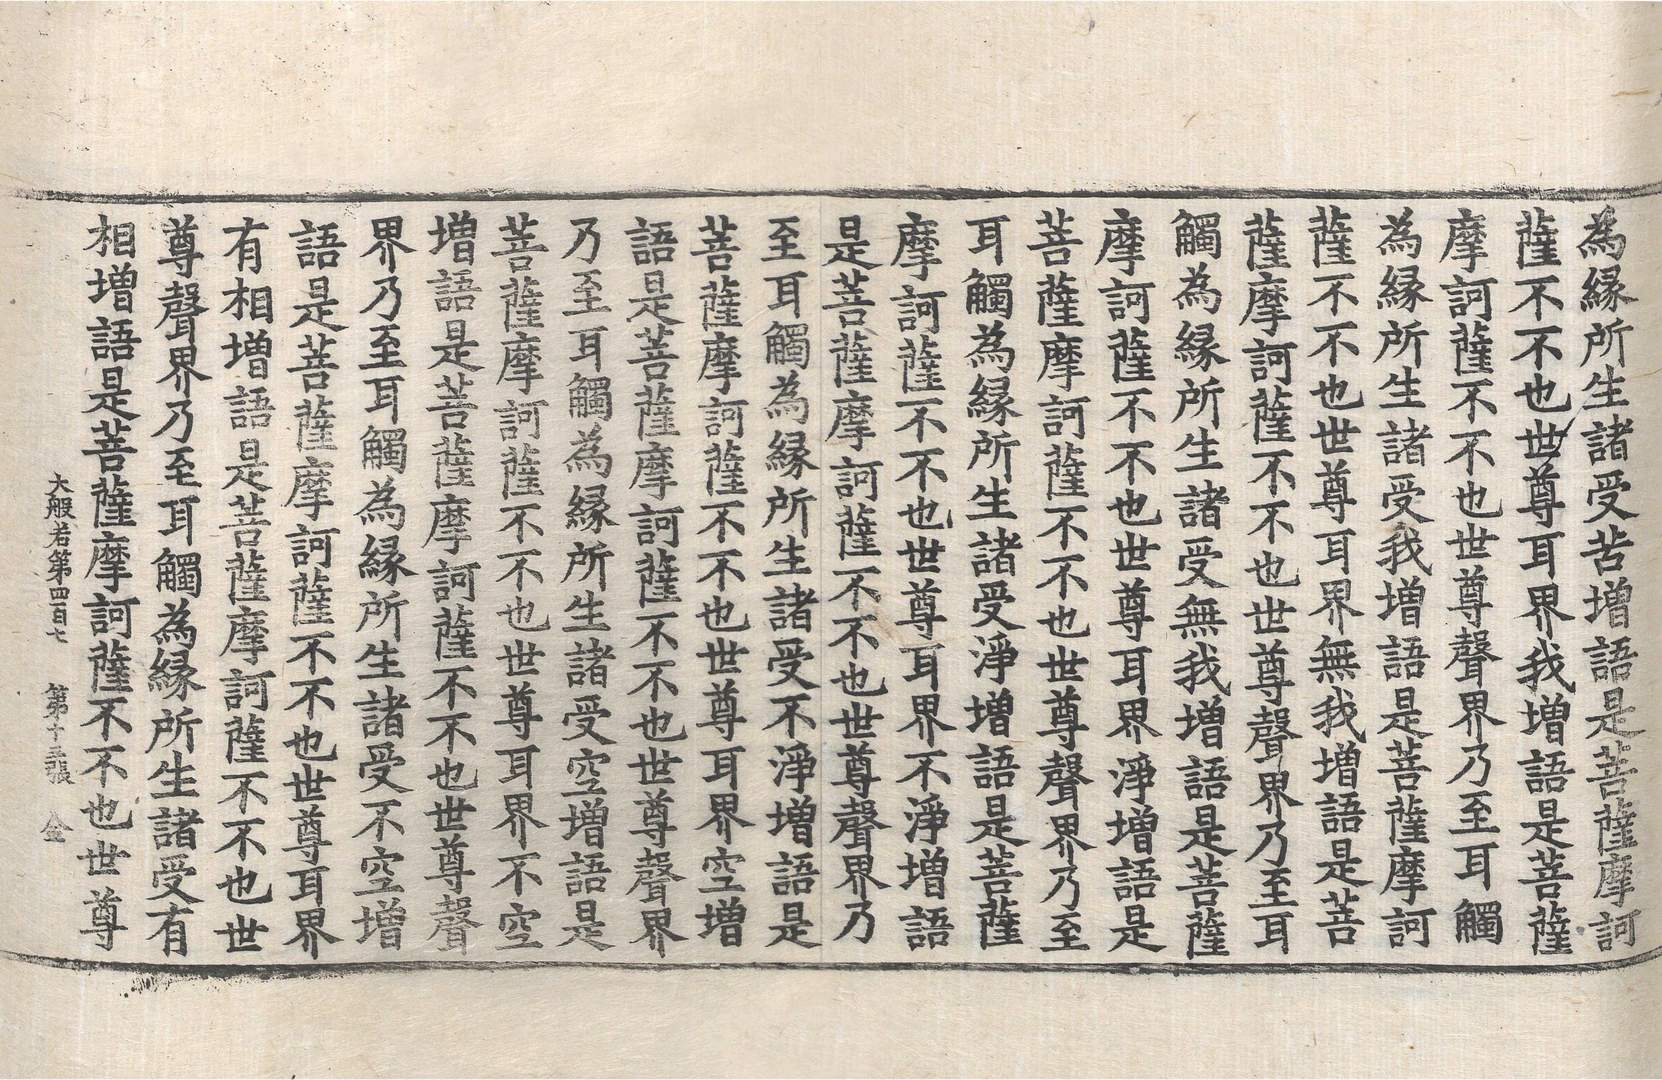 為縁所生諸受苦增語是菩薩摩訶
薩不不也世尊耳界我增語是菩薩
摩訶薩不不也世尊聲界乃至耳觸
為縁所生諸受我增語是菩薩摩訶
薩不不也世尊耳界無我增語是菩
薩摩訶薩不不也世尊聲界乃至耳
觸為縁所生諸受無我增語是菩薩
摩訶薩不不也世尊耳界淨增語是
菩薩摩訶薩不不也世尊聲界乃至
耳觸為縁所生諸受淨增語是菩薩
摩訶薩不不也世尊耳界不淨增語
是菩薩摩訶薩不不也世尊聲界乃
至耳觸為縁所生諸受不淨增語是
菩薩摩訶薩不不也世尊耳界空增
語是菩薩摩訶薩不不也世尊聲界
乃至耳觸為縁所生諸受空增語是
菩薩摩訶薩不不也世尊耳界不空
增語是菩薩摩訶薩不不也世尊聲
界乃至耳觸為縁所生諸受不空增
語是菩薩摩訶薩不不也世尊耳界
有相增語是菩薩摩訶薩不不也世
尊聲界乃至耳觸為縁所生諸受有
相增語是菩薩摩訶薩不不也世尊
大般若第四百七 第十三張 金